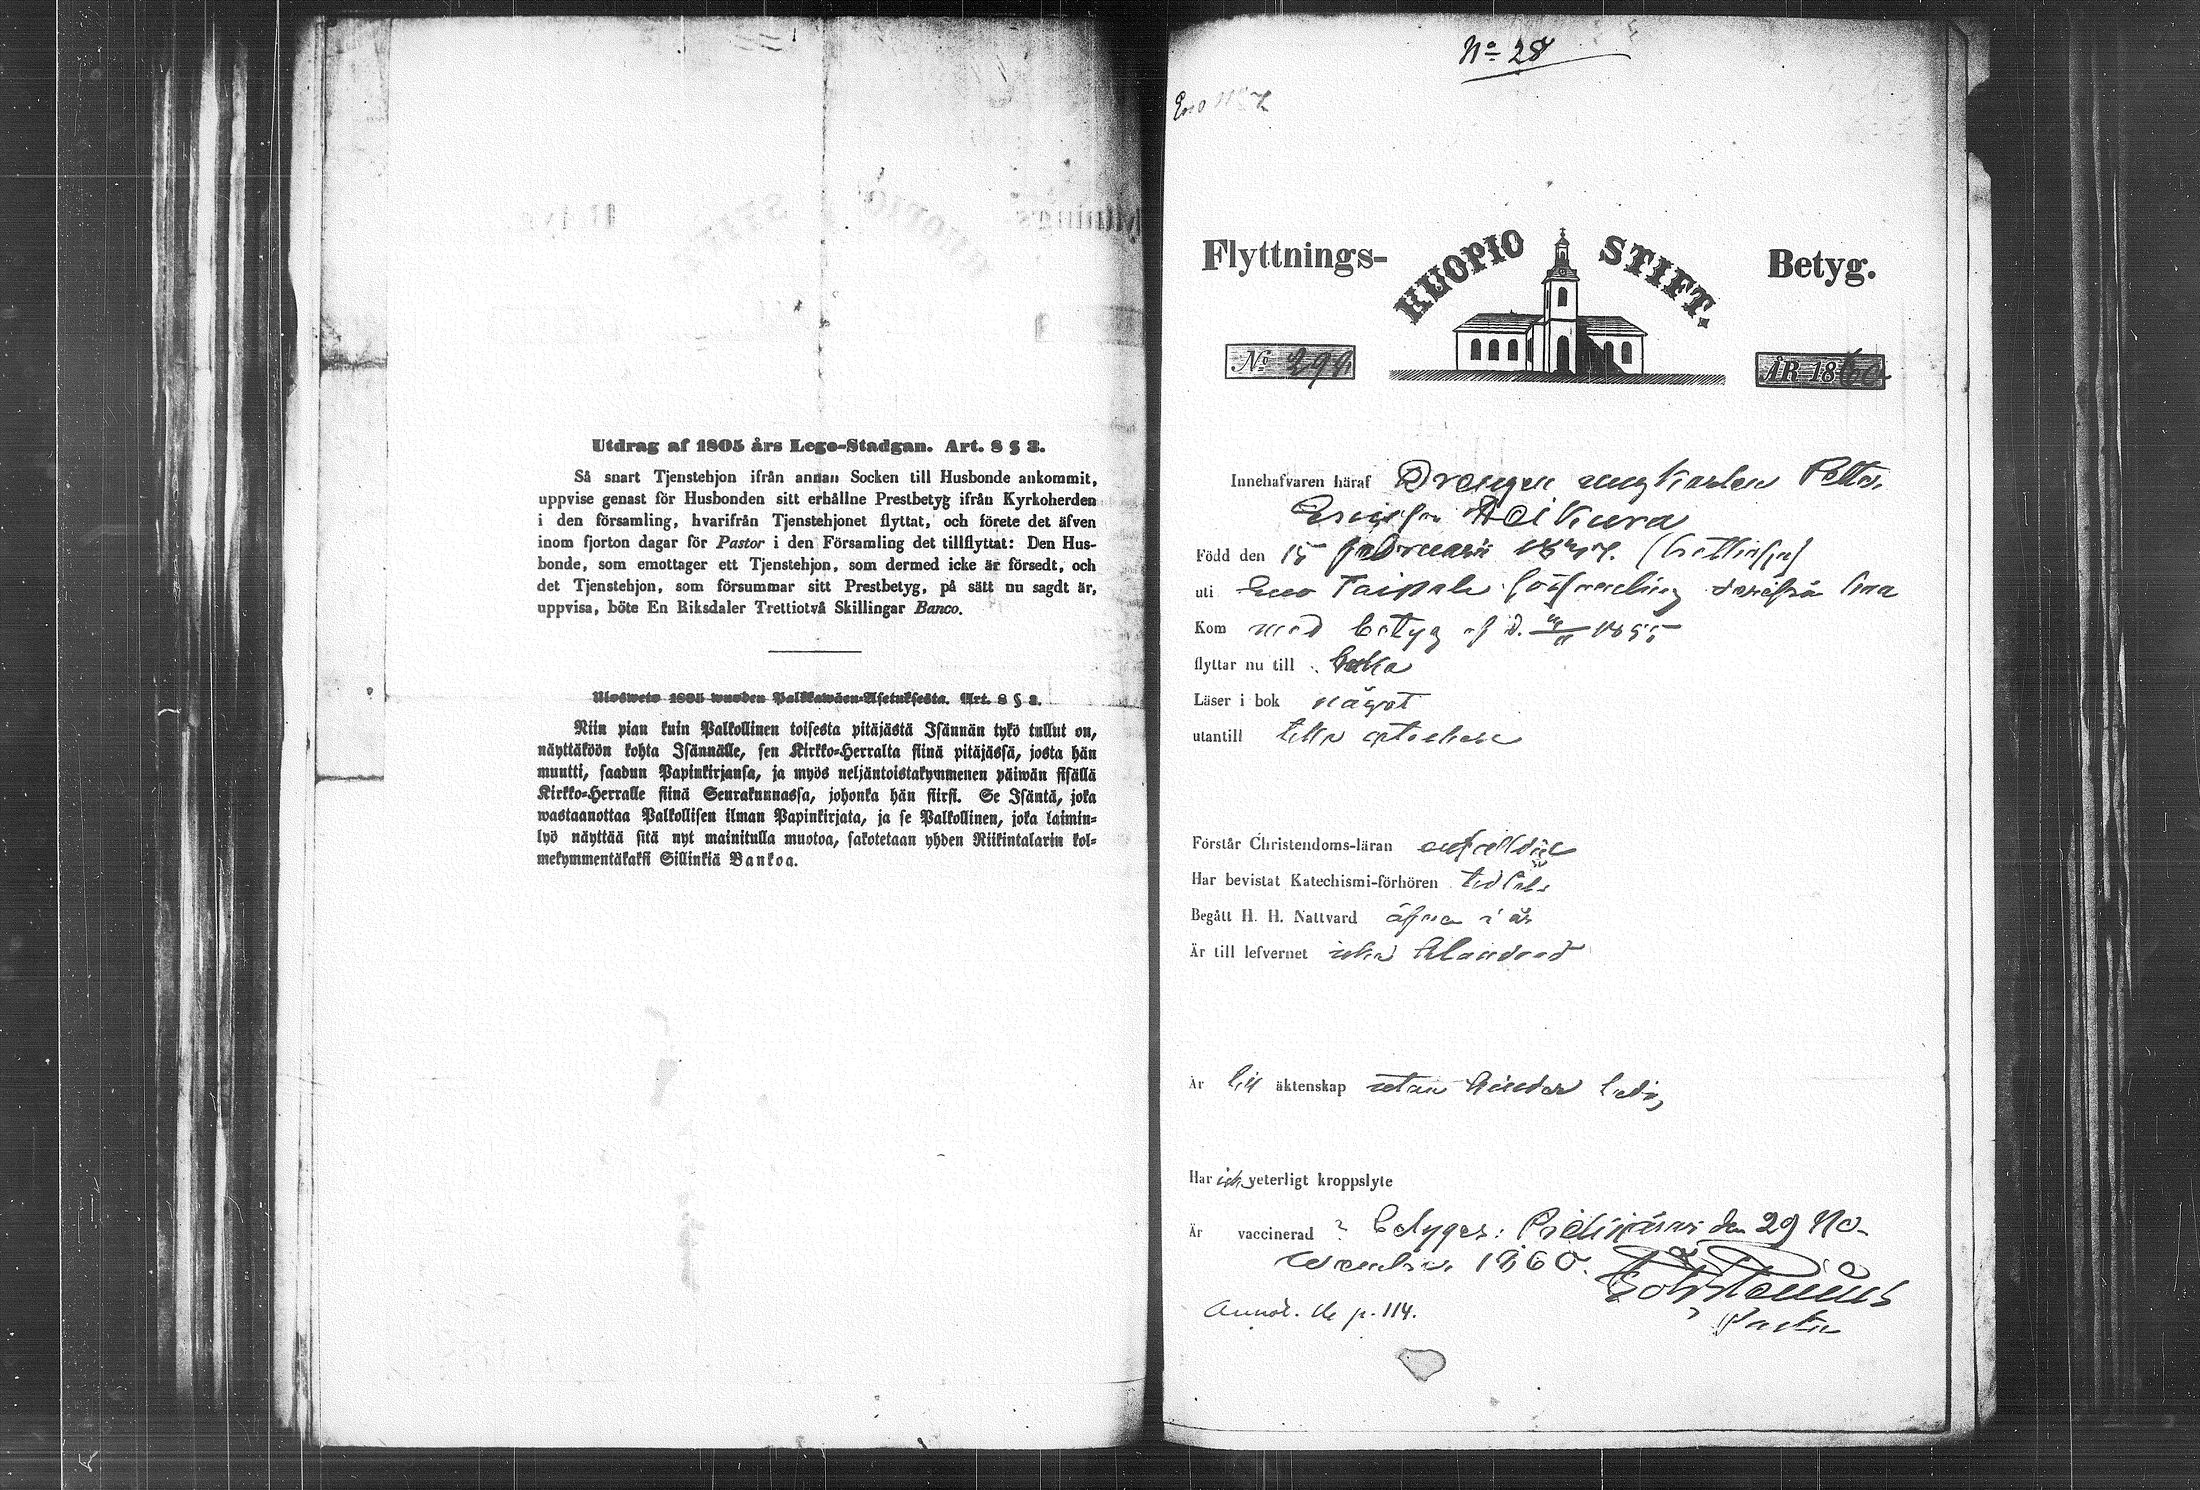 Utdrag af 1805 års Lego-Stadgan. Art. 8 § 3.
Så snart Tjenstehjon ifrån annan Socken till Husbonde ankommit,
uppvise genast för Husbonden sitt erhållne Prestbetyg ifrån Kyrkoherden
i den församling, hvarifrån Tjenstehjonet flyttat, och förete det äfven
inom fjorton dagar för Pastor i den Församling det tillflyttat: Den Hus-
bonde, som emottager ett Tjenstehjon, som dermed icke är försedt, och
det Tjenstehjon, som försummar sitt Prestbetyg, på sätt nu sagdt är,
uppvisa, böte En Riksdaler Trettiotvå Skillingar Banco.
Ulosweto 1805 wuoden Palkkawäen-Asetuksesta. Art. 8 § 3.
Niin pian kuin Palkollinen toisesta pitäjästä Isännän tykö tullut on,
näyttäköön kohta Isännälle, sen Kirkko-Herralta siinä pitäjässä, josta hän
muutti, saadun Papinkirjansa, ja myös neljäntoistakymmenen päiwän sisällä
Kirkko-Herralle siinä Seurakunnassa, johonka hän siirsi. Se Isäntä, joka
wastaanottaa Palkollisen ilman Papinkirjata, ja se Palkollinen, joka laimin-
lyö näyttää sitä nyt mainitulla muotoa, sakotetaan yhden Riikintalarin kol-
mekymmentäkaksi Sillinkiä Bankoa.
No 28
Eno
Flyttnings- KUOPIO STIFT. Betyg.
No 292 ÅR 1860
Innehafvaren häraf Drengen ungkarlen Petter
Ericsson Hoikura
Född den 15 februarii
uti Eno Taipale
Kom med betyg af d. 1855
flyttar nu till
Läser i bok något
utantill
Förstår Christendoms-läran enfaldigt
Har bevistat Katechismi-förhören
Begått H. H. Nattvard äfven i år
Är till lefvernet icke klandrad
Är till äktenskap utan hinder ledig
Har icke yeterligt kroppslyte
Är vaccinerad ? Betygar: Pielisjärvi den 29 No-
vember 1860.
Annot. p. 114.
Pastor